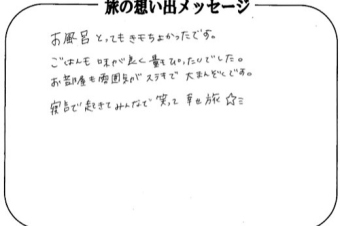 旅の想い出メッセージ
お風呂とってもきもちよかったです。
ごはんも味が良く量もぴったりでした。
お部屋も雰囲気がステキで大まんぞくです。
寝言で起きてみんなで笑って幸せ旅☆ミ